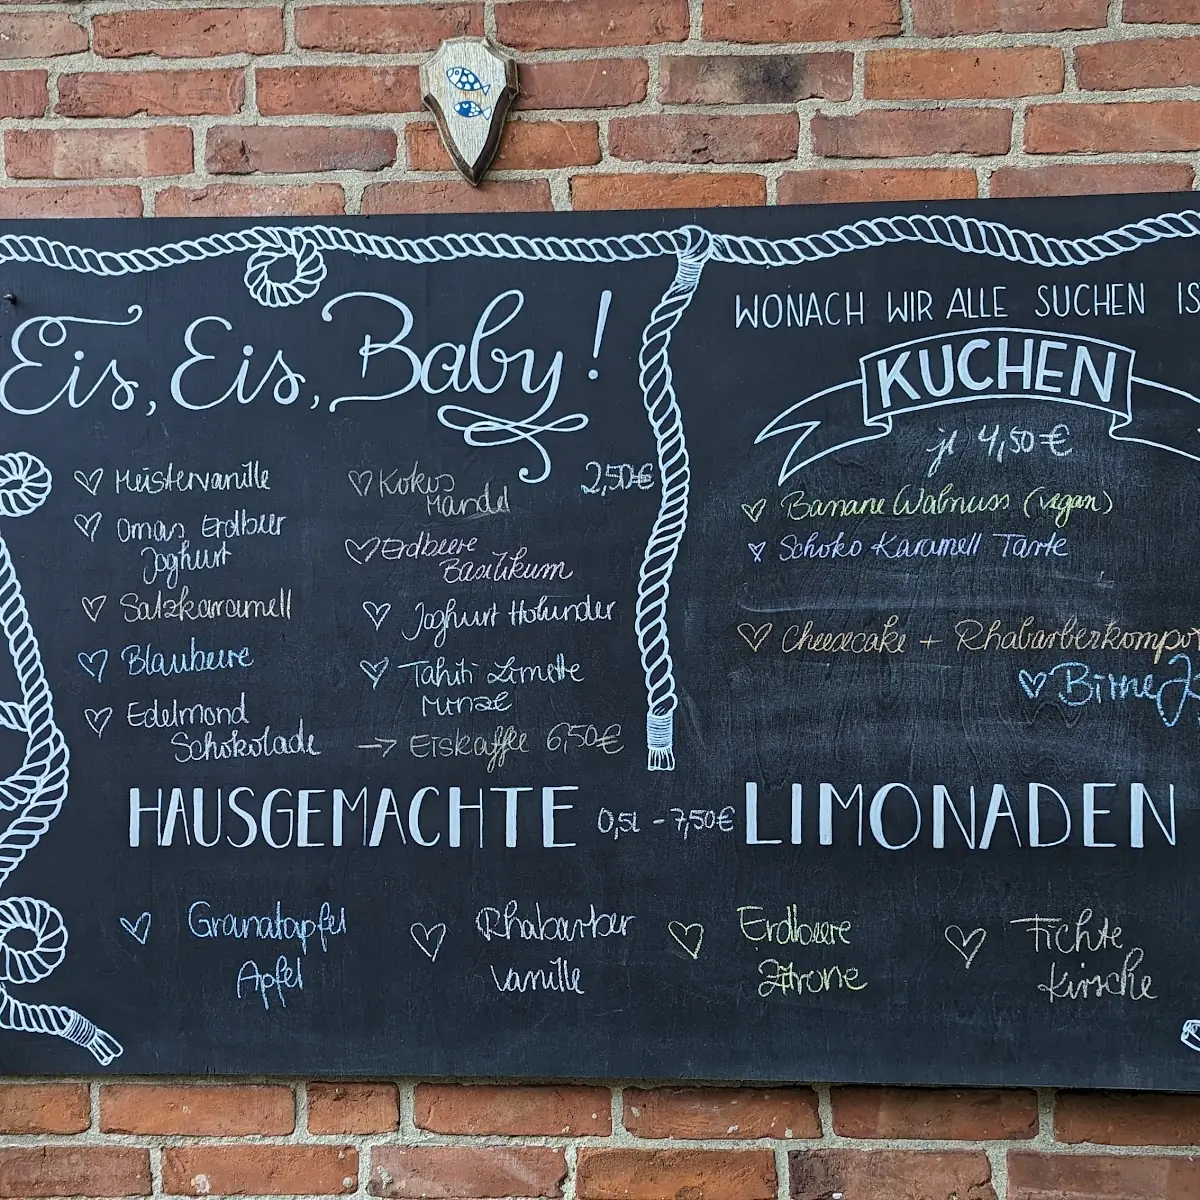 Eis, Eis, Baby!
2,50€
Meistervanille
Omas Erdbeer
Joghurt
Salzkaramell
Blaubeere
Edelmond
Schokolade
Kokos
Mandel
Erdbeere
Basilikum
Joghurt Holunder
Tahiti Limette
Minze
→ Eiskaffee 6,50€
WONACH WIR ALLE SUCHEN IS
KUCHEN
je 4,50€
Banane Walnuss (vegan)
Schoko Karamell Tarte
Cheesecake + Rhabarberkompo
Birne
HAUSGEMACHTE 0,5l - 7,50€ LIMONADEN
Granatapfel
Apfel
Rhabarber
Vanille
Erdbeere
Zitrone
Fichte
Kirsche